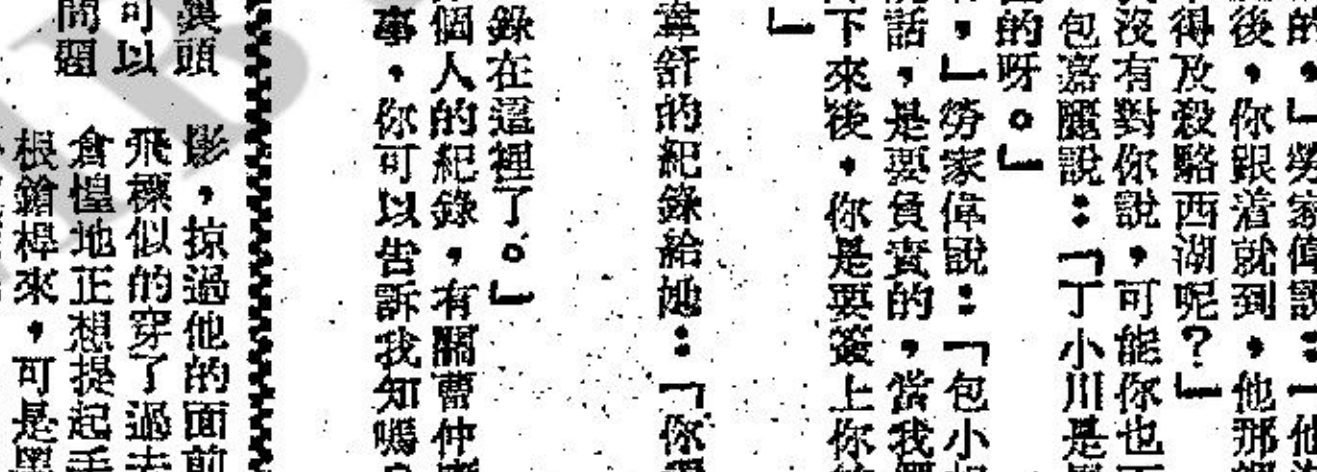 的，」勞家偉說：「他
後，你跟着就到，他那
得及殺駱西湖呢？」
沒有對你說，可能你也
包嘉麗說：「丁小川是
的呀。」
，」勞家偉說：「包小
話，是要負責的，當我
下來後，你是要簽上你
」
韋舒的紀錄給她：「你
錄在這裡了。」
個人的紀錄，有關曹仲
事，你可以告訴我知嗎
頭
可以
問題
影，掠過他的面前
飛標似的穿了過去
倉惶地正想提起手
根鎗桿來，可是黑